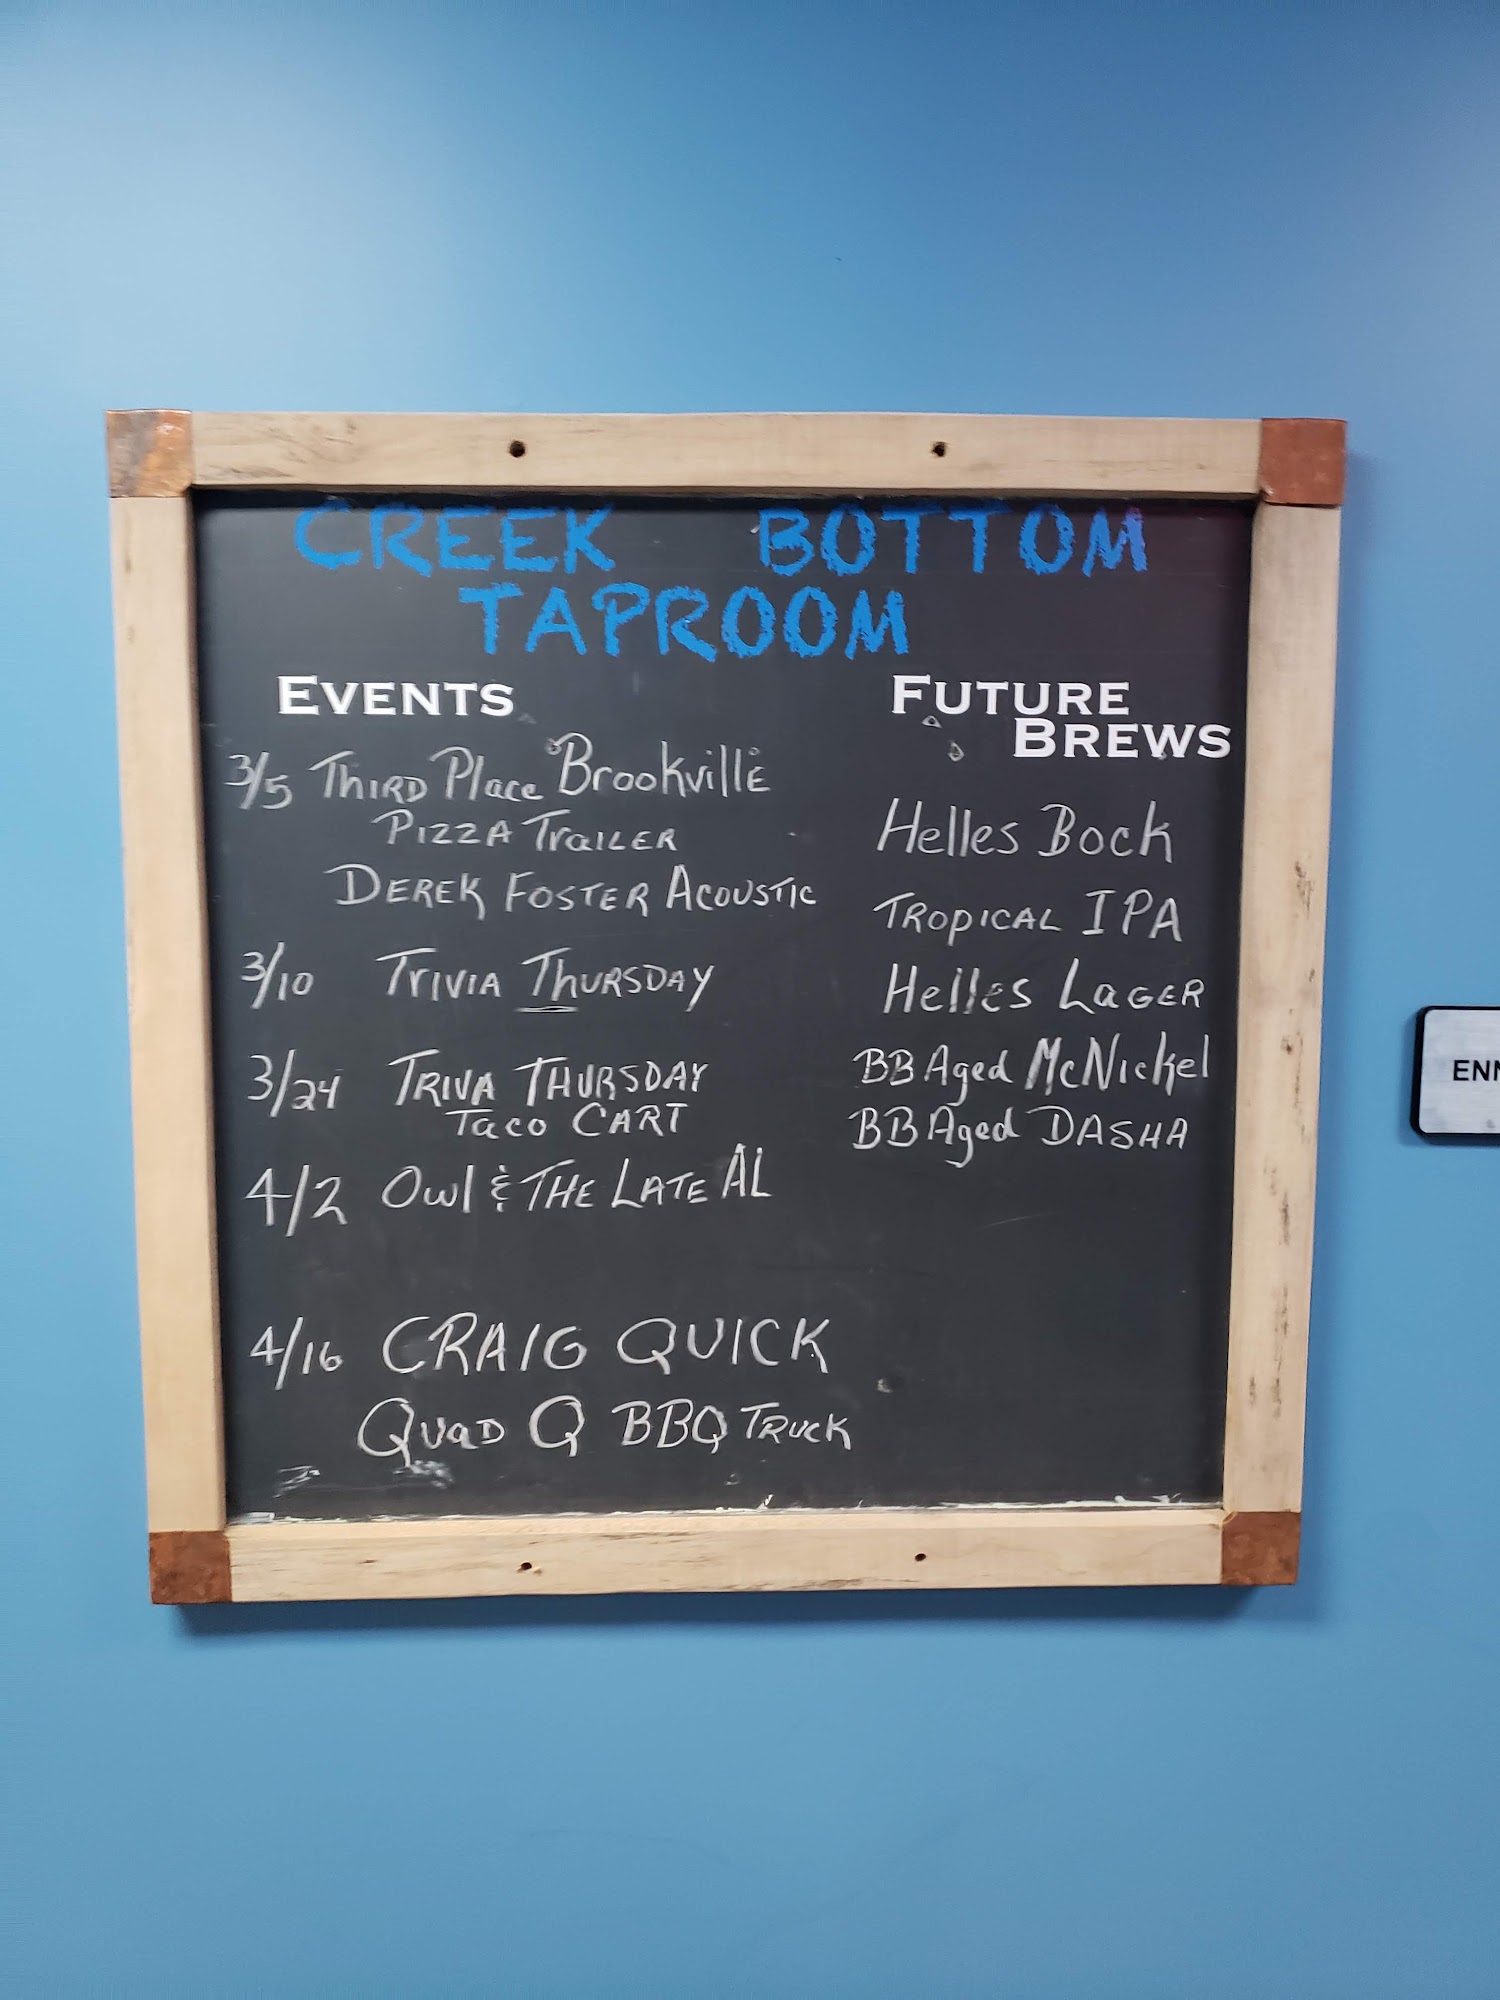 CREEK BOTTOM
TAPROOM
EVENTS
3/5 THIRD Place Brookville
PIZZA TRAILER
DEREK FOSTER ACOUSTIC
3/10 TRIVIA THURSDAY
3/24 TRIVA THURSDAY
Taco CART
4/2 Owl & THE LATE AL
4/16 CRAIG QUICK
QUAD Q BBQ TRUCK
FUTURE
BREWS
Helles Bock
TROPICAL IPA
Helles LAGER
BB Aged McNickel
BB Aged DASHA
ENN